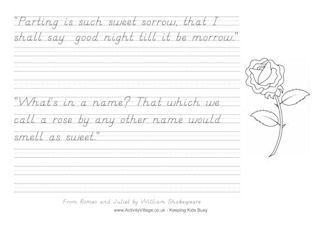 "Parting is such sweet sorrow, that I
shall say good night till it be morrow."
"What's in a name? That which we
call a rose by any other name would
smell as sweet."
From Romeo and Juliet by William Shakespeare
www.ActivityVillage.co.uk - Keeping Kids Busy